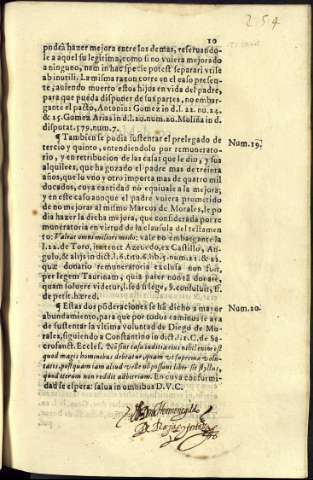 254
10
podrà hazer mejora entre los demas, reseruando-
le a aquel su legitima, como si no vuiera mejorado
a ninguno, nam in hac specie potest separari vtile
ab inutili. La misma razon corre en el caso presen-
te, auiendo muerto estos hijos en vida del padre,
para que pueda disponer de sus partes, no embar-
gante el pacto, Antonius Gomez in d.l. 22. nu. 24.
& 25. Gomez Arias in d.l. 20. num. 20. Molina in d.
disputat. 579. num. 7.
¶ Tambien se podia sustentar el prelegado de
Num. 19.
tercio y quinto, entendiendolo por remunerato-
rio, y en retribucion de las casas que le dio, y sus
alquileres, que ha gozado el padre mas de treinta
años, que lo vno y otro importa mas de quatro mil
ducados, cuya cantidad no equiuale a la mejora;
y en este caso aunque el padre vuiera prometido
de no mejorar al mismo Marcos de Morales, le po
dia hazer la dicha mejora, que considerada por re
muneratoria en virtud de la clausula del testamen
to: Valeat omni meliori modo: vale no embargante la
l. 22. de Toro, ita tenet Azeuedo, ex Castillo, An-
gulo, & alijs in dict. l. 6. tit. 6. lib. 5. num. 21. & 22.
quæ donatio remuneratoria exclusa non fuit,
per legem Taurinam, quia pater potest donare,
quam soluere videtur, l. sed si lege, §. consuluit, ff.
de petit. hæred.
¶ Estas dos põderaciones se ha dicho a mayor
Num. 20.
abundamiento, para que por todos caminos se aya
de sustentar la vltima voluntad de Diego de Mo-
rales, siguiendo a Constantino in dict. l. 1. C. de Sa-
crosanct. Eccles. Nil sit
quod magis hominibus debeatur, quam vt supremæ volun-
tatis, postquam iam aliud velle non possunt liber sit stylus,
quod iterum non reddit arbitrium. En cuya conformi-
dad se espera: salua in omnibus D.V.C.